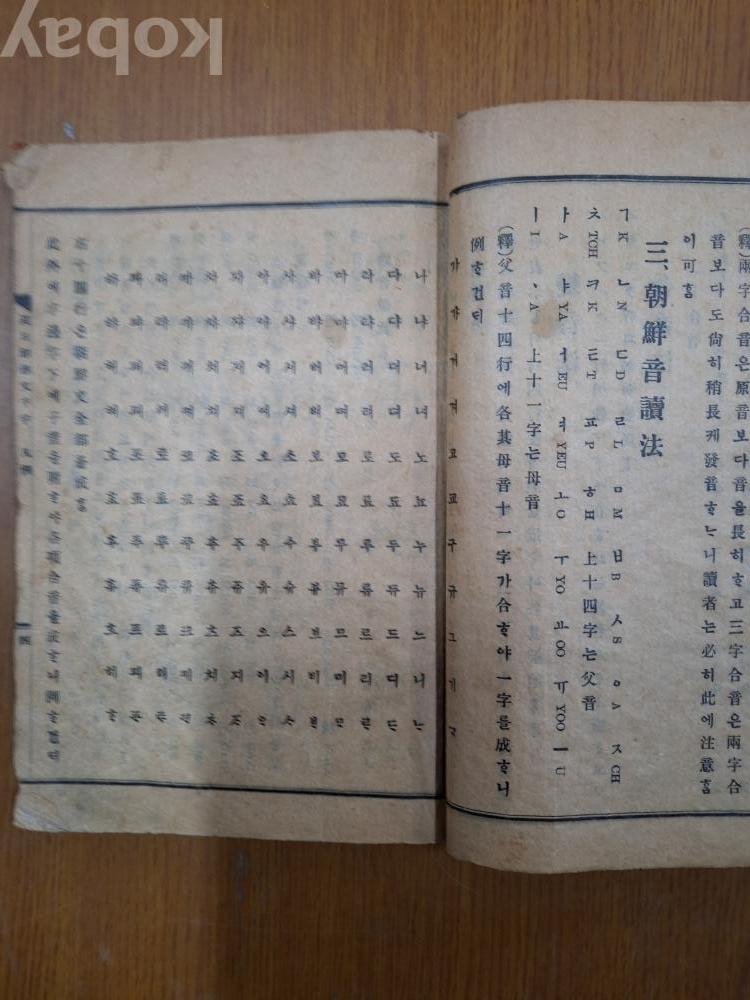 (釋)兩字合音은原音보다音을長히ᄒᆞ고三字合音은兩字合
音보다도尙히稍長케發音ᄒᆞᄂᆞ니讀者는必히此에注意ᄒᆞᆷ
이可ᄒᆞᆷ
三、朝鮮音讀法
ㄱK ㄴN ㄷD ㄹL ㅁM ㅂB ㅅS ㅇA ㅈCH
ㅊTCH ㅋK ㅌT ㅍP ㅎH 上十四字는父音
ㅏA ㅑYA ㅓEU ㅕYEU ㅗO ㅜYO ㅛOO ㅠYOO ㅡU
ㅣI ㆍA 上十一字는母音
(釋)父音十四行에各其母音十一字가合ᄒᆞ야一字를成ᄒᆞ니
例ᄒᆞ건ᄃᆡ
가 갸 거 겨 고 교 구 규 그 기 ᄀᆞ
나 냐 너 녀 노 뇨 누 뉴 느 니 ᄂᆞ
다 댜 더 뎌 도 됴 두 듀 드 디 ᄃᆞ
라 랴 러 려 로 료 루 류 르 리 ᄅᆞ
마 먀 머 며 모 묘 무 뮤 므 미 ᄆᆞ
바 뱌 버 벼 보 뵤 부 뷰 브 비 ᄇᆞ
사 샤 서 셔 소 쇼 수 슈 스 시 ᄉᆞ
아 야 어 여 오 요 우 유 으 이 ᄋᆞ
자 쟈 저 져 조 죠 주 쥬 즈 지 ᄌᆞ
차 챠 처 쳐 초 쵸 추 츄 츠 치 ᄎᆞ
카 캬 커 켜 코 쿄 쿠 큐 크 키 ᄏᆞ
타 탸 터 텨 토 툐 투 튜 트 티 ᄐᆞ
파 퍄 퍼 펴 포 표 푸 퓨 프 피 ᄑᆞ
하 햐 허 혀 호 효 후 휴 흐 히 ᄒᆞ
右十四行은朝鮮文全部를成ᄒᆞᆷ
此外에
四
kobay